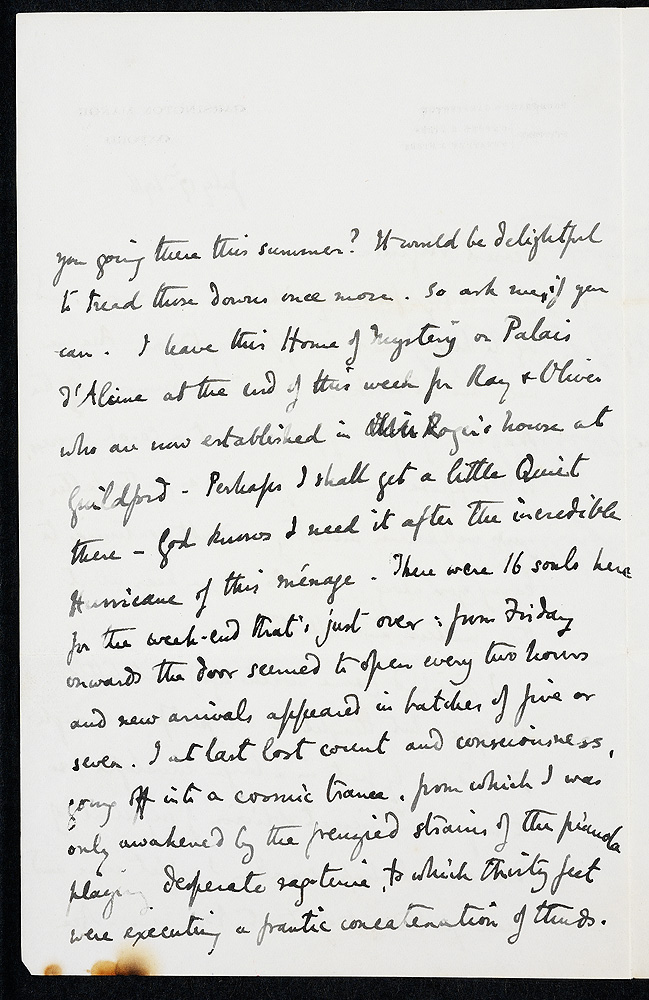 you going there this summer? It would be delightful
to tread those downs once more. So ask me, if you
can. I leave this Home of Mystery or Palais
d'Alcine at the end of this week for Ray & Oliver
who are now established in Roger's house at
Guildford – Perhaps I shall get a little Quiet
there – God knows I need it after the incredible
Hurricane of this ménage. There were 16 souls here
for the week-end that's just over: from Friday
onwards the door seemed to open every two hours
and new arrivals appeared in batches of five or
seven. I at last lost count and consciousness,
going off into a cosmic trance, from which I was
only awakened by the frenzied strains of the pianola
playing desperate ragtime, to which thirty feet
were executing a frantic concatenation of thuds.